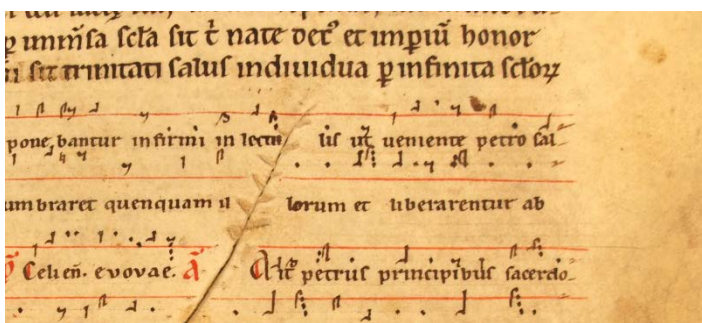 ꝑ uniūsa scła sit t̄ nate decꝰ et impiū honor
sit trinitati salus indiuidua ꝑ infinita scłoꝝ
ponebantur infirmi in lectulis ut ueniente petro sal-
umbraret quenquam illorum et liberarentur ab
Celi en̄. evovae. A
Ait petrus principibus sacerdo-